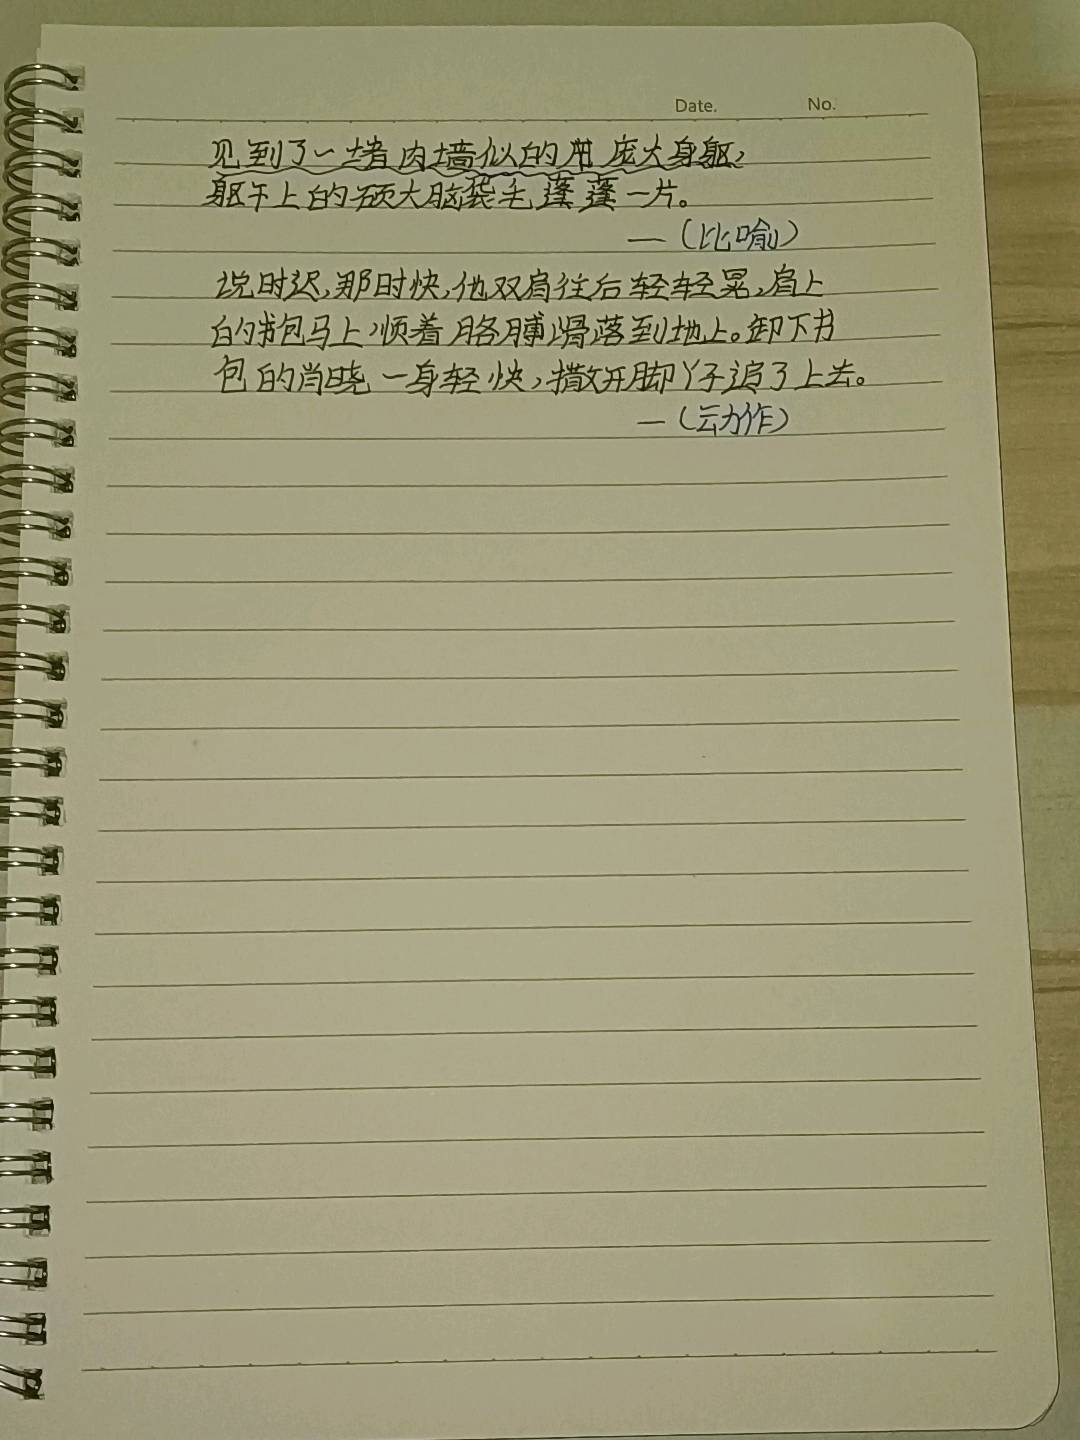 Date. No.
见到了一堵肉墙似的用庞大身躯,
躯干上的硕大脑袋毛蓬蓬一片。
—（比喻）
说时迟,那时快,他双肩往后轻轻晃,肩上
的书包马上顺着胳膊滑落到地上。卸下书
包的肖晓一身轻快,撒开脚丫子追了上去。
—（动作）